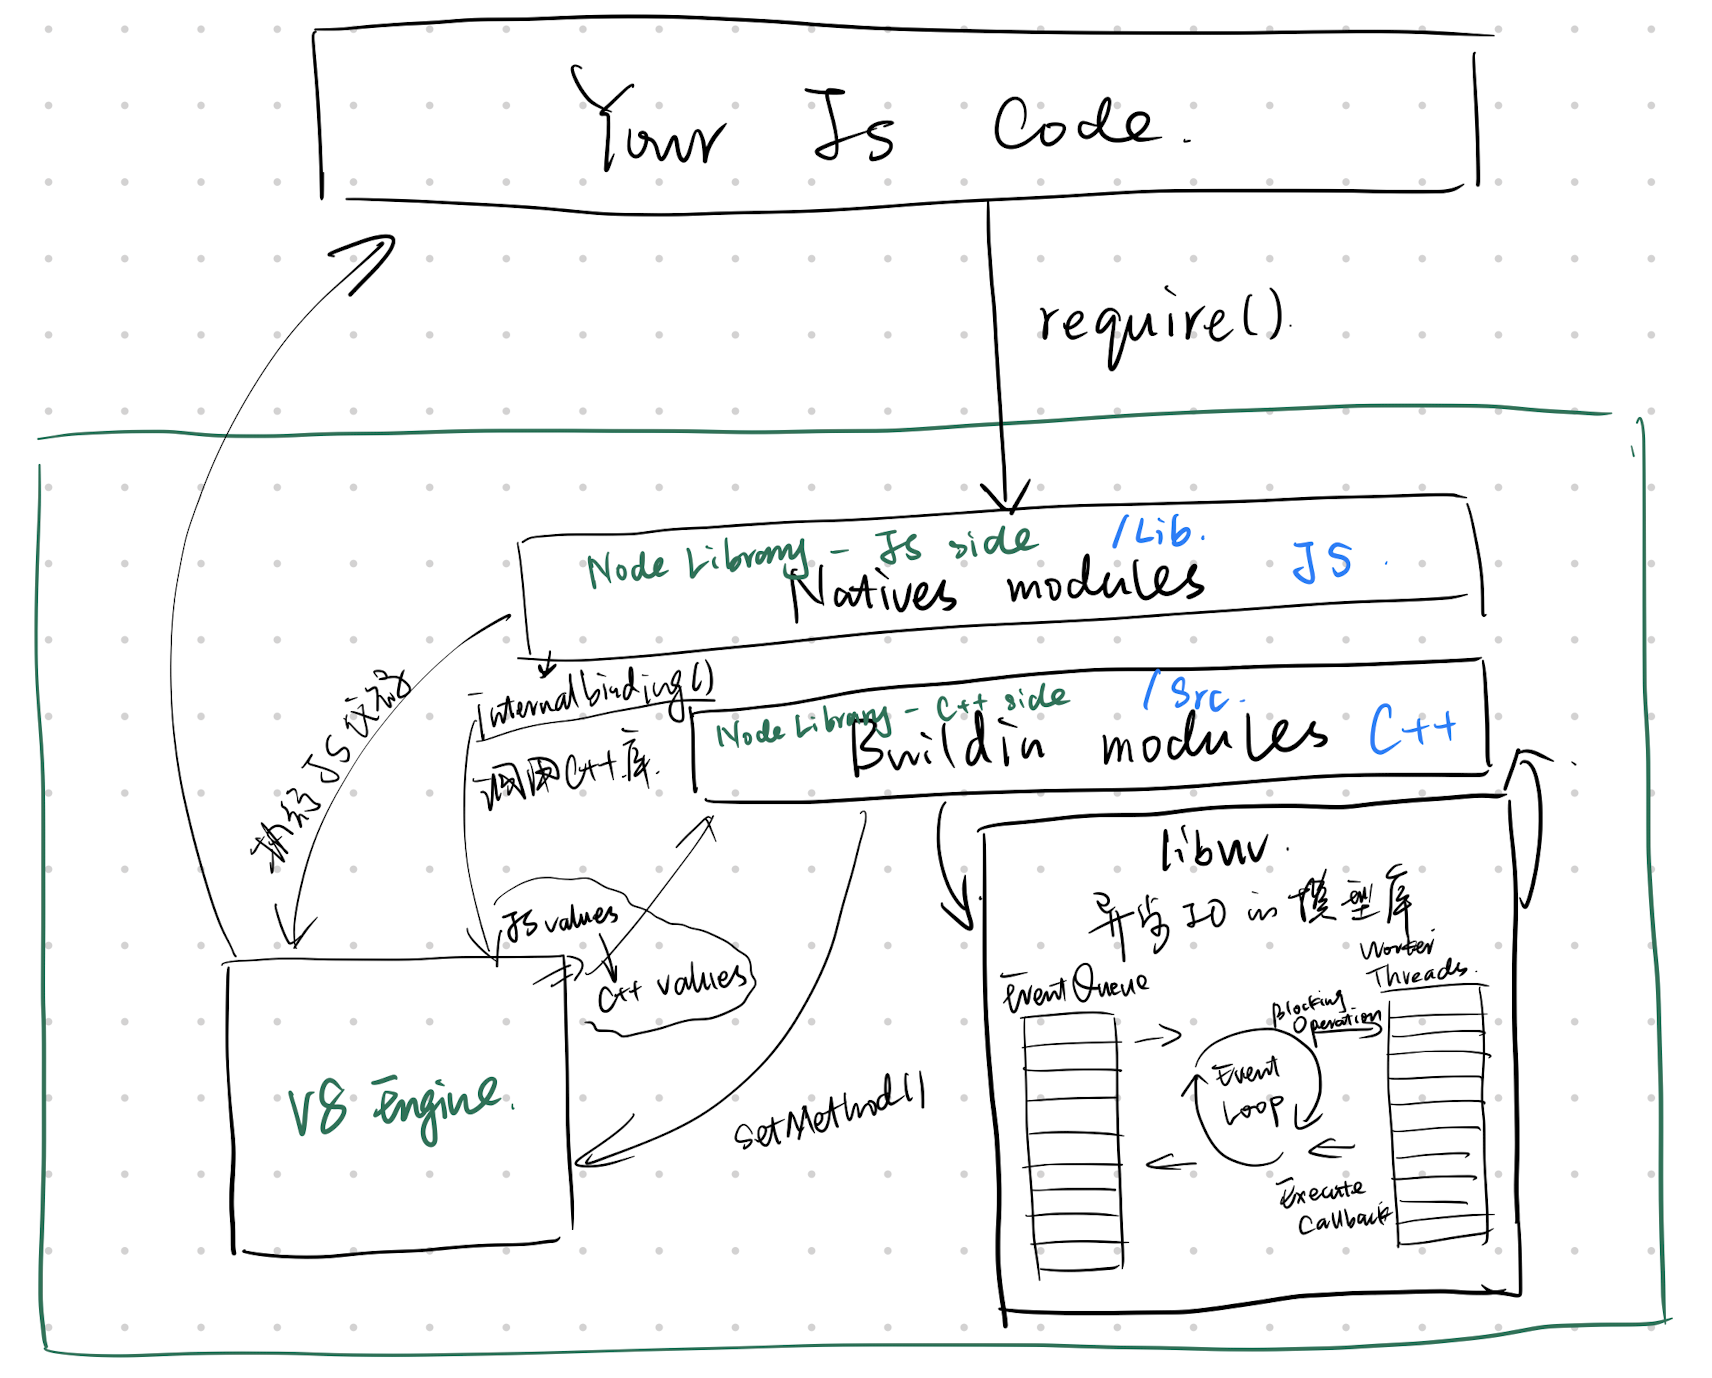 Your Js Code.
require().
Node Library - Js side /Lib.
Natives modules JS.
internalbinding()
调用C++库.
Node Library - C++ side /Src.
Buildin modules C++
执行JS
JS values
C++ values
V8 Engine.
setMethod()
libuv.
异步IO 模型库
Event Queue
Worker
Threads.
Blocking
Operation
Event
Loop
Execute
Callback